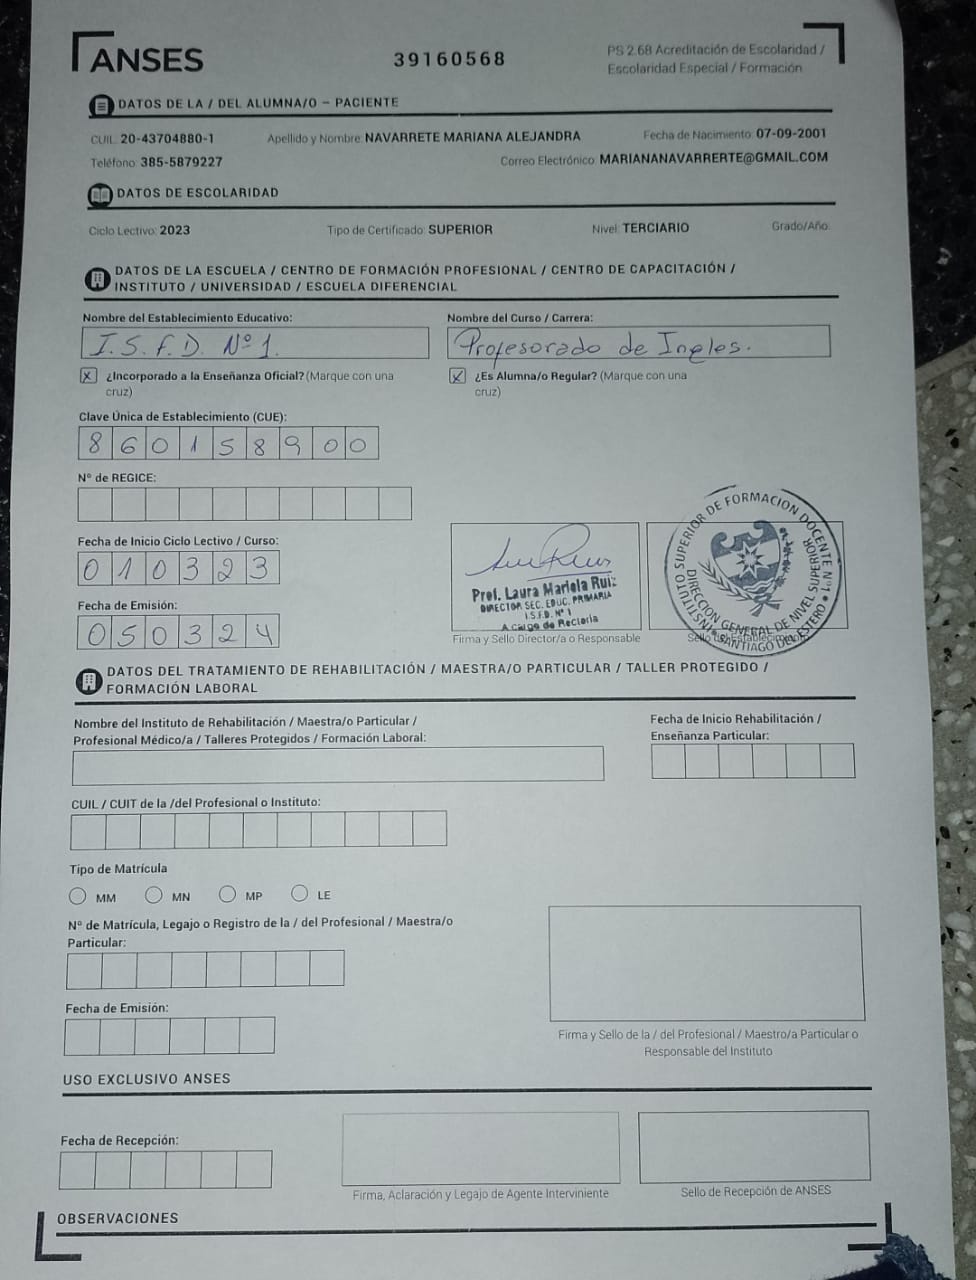 ANSES
39160568
PS 2.68 Acreditación de Escolaridad /
Escolaridad Especial / Formación
DATOS DE LA / DEL ALUMNA/O – PACIENTE
CUIL: 20-43704880-1 Apellido y Nombre: NAVARRETE MARIANA ALEJANDRA Fecha de Nacimiento: 07-09-2001
Teléfono: 385-5879227 Correo Electrónico: MARIANANAVARRERTE@GMAIL.COM
DATOS DE ESCOLARIDAD
Ciclo Lectivo: 2023 Tipo de Certificado: SUPERIOR Nivel: TERCIARIO Grado/Año:
DATOS DE LA ESCUELA / CENTRO DE FORMACIÓN PROFESIONAL / CENTRO DE CAPACITACIÓN /
INSTITUTO / UNIVERSIDAD / ESCUELA DIFERENCIAL
Nombre del Establecimiento Educativo: Nombre del Curso / Carrera:
I.S.F.D. Nº 1. Profesorado de Ingles.
X ¿Incorporado a la Enseñanza Oficial? (Marque con una
cruz)
X ¿Es Alumna/o Regular? (Marque con una
cruz)
Clave Única de Establecimiento (CUE):
860158900
Nº de REGICE:
Fecha de Inicio Ciclo Lectivo / Curso:
010323
Fecha de Emisión:
050324
Prof. Laura Mariela Ruiz
DIRECTOR SEC. EDUC. PRIMARIA
I.S.F.D. Nº 1
A cargo de Rectoría
Firma y Sello Director/a o Responsable
INSTITUTO SUPERIOR DE FORMACION DOCENTE Nº1
DIRECCION GENERAL DE NIVEL SUPERIOR
SANTIAGO DEL ESTERO
Sello del Establecimiento
DATOS DEL TRATAMIENTO DE REHABILITACIÓN / MAESTRA/O PARTICULAR / TALLER PROTEGIDO /
FORMACIÓN LABORAL
Nombre del Instituto de Rehabilitación / Maestra/o Particular /
Profesional Médico/a / Talleres Protegidos / Formación Laboral:
Fecha de Inicio Rehabilitación /
Enseñanza Particular:
CUIL / CUIT de la /del Profesional o Instituto:
Tipo de Matrícula
MM MN MP LE
Nº de Matrícula, Legajo o Registro de la / del Profesional / Maestra/o
Particular:
Fecha de Emisión:
Firma y Sello de la / del Profesional / Maestro/a Particular o
Responsable del Instituto
USO EXCLUSIVO ANSES
Fecha de Recepción:
Firma, Aclaración y Legajo de Agente Interviniente
Sello de Recepción de ANSES
OBSERVACIONES